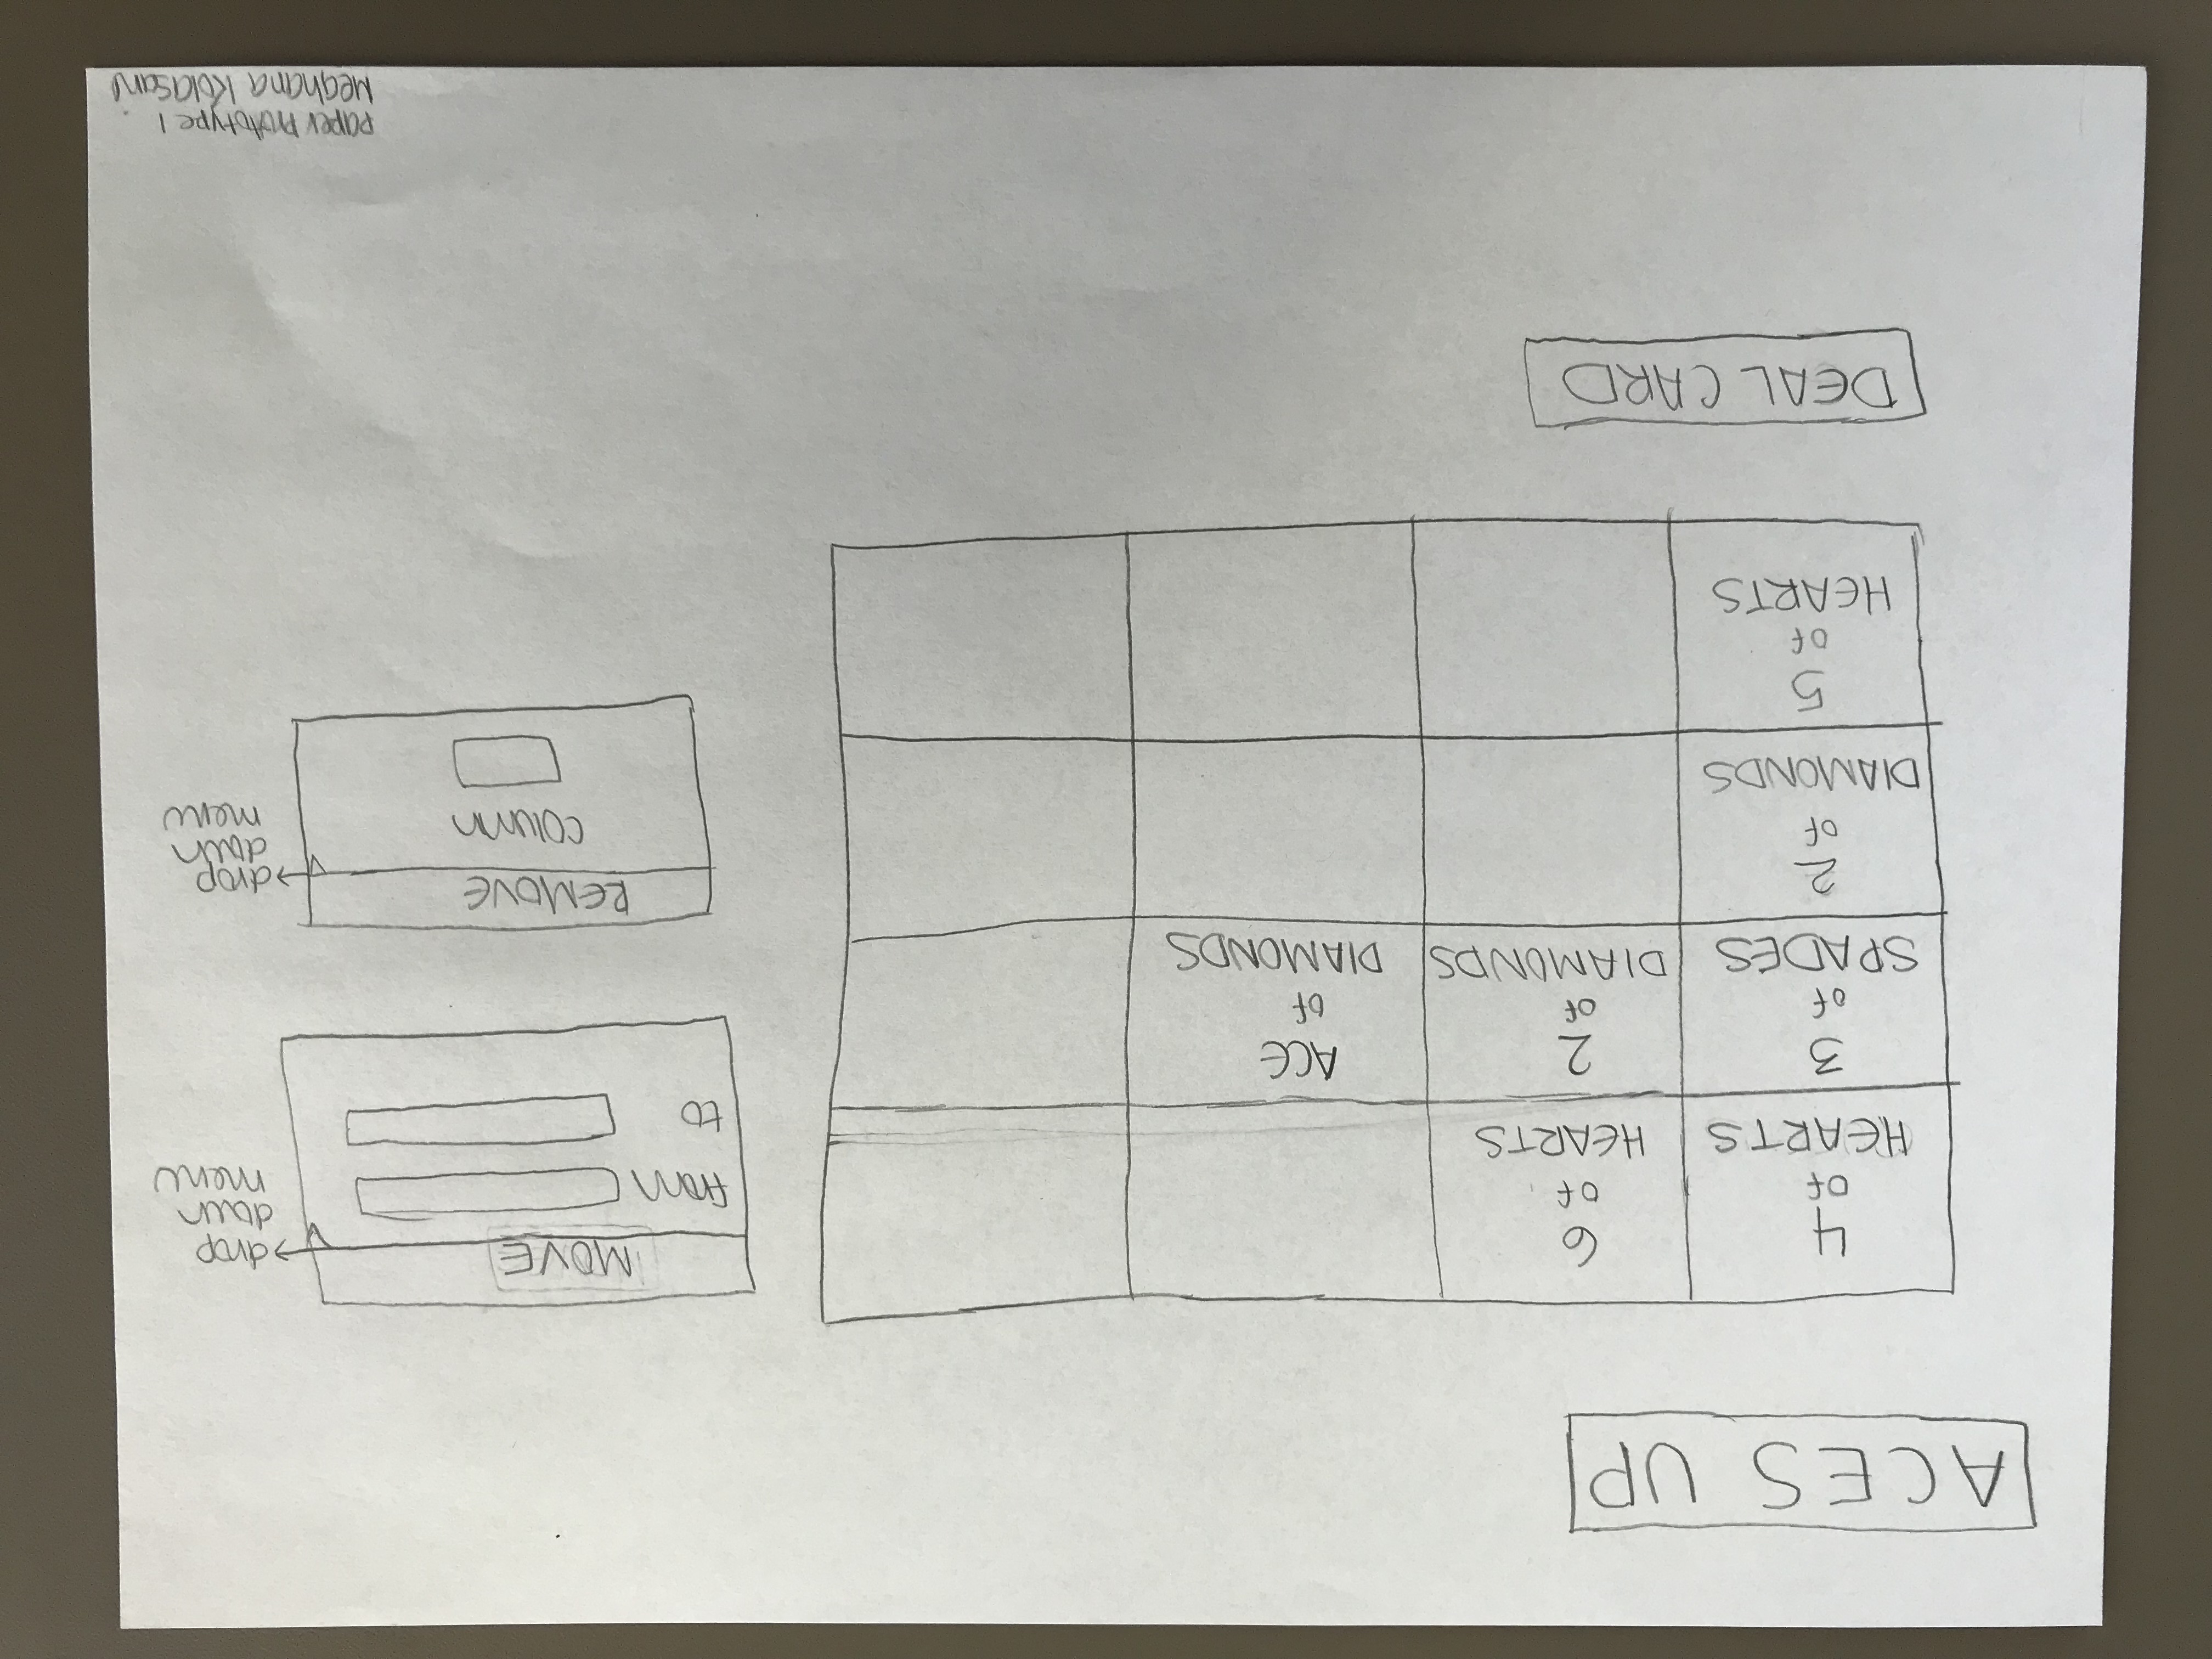 ACES UP
4
of
HEARTS
6
of
HEARTS
3
of
SPADES
2
of
DIAMONDS
ACE
of
DIAMONDS
2
of
DIAMONDS
5
of
HEARTS
MOVE
from
to
drop
down
menu
REMOVE
column
drop
down
menu
DEAL CARD
paper prototype 1
Meghana Kolasani